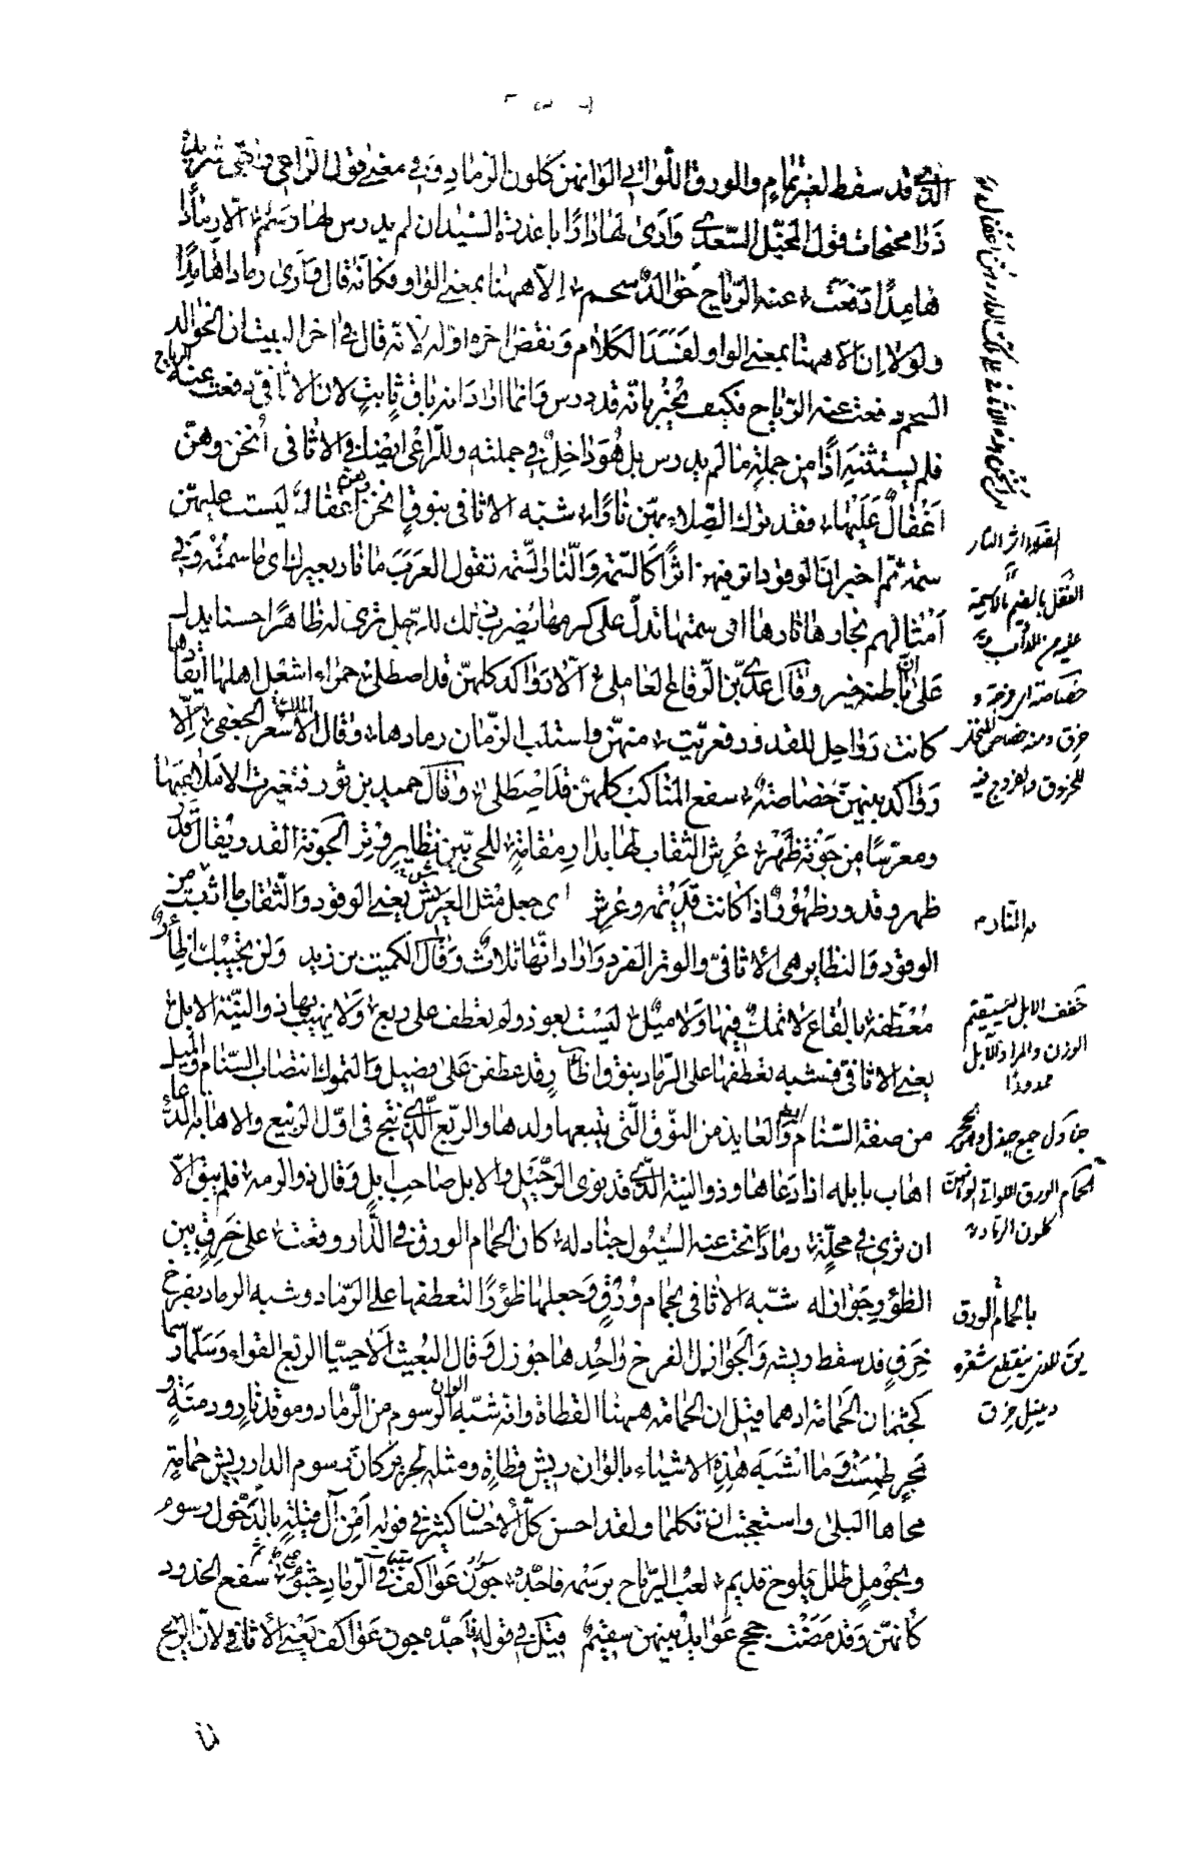 الذي قد سقط لغير تمام والورق اللواتي الوانهن كلون الرماد وفي معنى قول الراعي
ذرا مجنحات قول المخبل السعدي وارى لها دارا باغدرة السيدان لم يدرس لها رسم الا رمادا
هامدا دفعت عنه الرياح خوالد سحم الا ههنا بمعنى الواو فكانه قال وارى رمادا هامدا
ولولا ان الا ههنا بمعنى الواو لفسد الكلام ونقض اخره اوله لانه قال في اخر البيت ان الخوالد
السحم دفعت عنه الرياح فكيف يخبر بانه قد درس وانما اراد انه باق ثابت لان الاثافي دفعت عنه الرياح
فلم يستثنه اذا من جملة ما لم يدرس بل هو داخل في جملته وللراعي ايضا في الاثافي انخن وهن
اغفال عليها فقد ترك الصلاء بهن نارا شبه الاثافي بنوق انخن وهن اغفال ليست عليهن
سمة ثم اخبر ان الوقود اثر فيهن اثرا كالسمة والنار السمة تقول العرب ما نار بعيرك اي ما سمته وفي
امثالهم نجارها نارها اي سمتها تدل على كرمها يضرب ذلك للرجل ترى له ظاهرا حسنا يدل
على ان باطنه خير وقال عدي بن الرقاع العاملي الا رواكد كلهن قد اصطلى حمراء اشعل اهلها ايقادها
كانت رواحل للقدور فعريت منهن واستلب الزمان رمادها وقال الاسعر الجعفي الا
رواكد بينهن خصاصة سفع المناكب كلهن قد اصطلى وقال حميد بن ثور فتغيرت الا ملاعبها
ومعرسا من جونة ظهر عرش الثقاب لها بدار مقامة للحي بين نظاير وتر الجونة القدر ويقال قدر
ظهر وقدور ظهور اذا كانت قديمة وعرش اي جعل مثل العريش يعني الوقود والثقاب ما اثقبت من
الوقود والنظاير هي الاثافي والوتر الفرد واراد انها ثلاث وقال الكميت بن زيد ولن تجيبك اظار
معطفة بالقاع لا تمك فيها ولا ميل ليست بعوذ ولم تعطف على ربع ولا يهيب بها ذو النية الابل
يعني الاثافي فشبه تعطفها على الرماد بنوق اظار قد عطفن على فصيل والتموك انتصاب السنام والميل
من صفة السنام ايضا والعايذ من النوق التي يتبعها ولدها والربع الذي نتج في اول الربيع والاهابة الدعاء
اهاب بابله اذا دعاها وذو النية الذي قد نوى الرحيل والابل صاحب ابل وقال ذو الرمة فلم يبق الا
ان ترى في محلة رمادا نحت عنه السيول جنادله كان الحمام الورق في الدار وقعت على خرق بين
الظؤر جوازله شبه الاثافي بحمام ورق وجعلها ظؤرا لتعطفها على الرماد وشبه الرماد بفرخ
خرق قد سقط ريشه والجوازل الفرخ واحدها جوزل وقال البعيث الا حييا الربع القواء وسلما
كجثمان الحمامة ادهما قيل ان الحمامة ههنا القطاة وانه شبه الوان الرسوم من الرماد وموقد نار ودمنة
بالوان ريش قطاة ومثله لجرير كان رسوم الدار ريش حمامة
محاها البلى واستعجمت ان تكلما ولقد احسن كل الاحسان كثير في قوله امن آل قيلة بالدخول رسوم
وبحومل طلل يلوح قديم لعب الرياح برسمه فاجده جون عواكف في الرماد جثوم سفع الخدود
كانهن وقد مضت حجج عوايد بينهن سقيم قيل في قوله فاجده جون عواكف يعني الاثافي لان الريح
الصلاء اثر النار
الغفل بالضم مالا سمة
عليه من الدواب
خصاصة الفرجة و
خرق ومنه خصاص المنخل
للخروق والفروج فيه
خفف الابل ليستقيم
الوزن والمراد الابل
ممدودا
جنادل جمع جندل وهو الحجر
الحمام الورق اللواتي الوانهن
كلون الرماد
بالحمام الورق